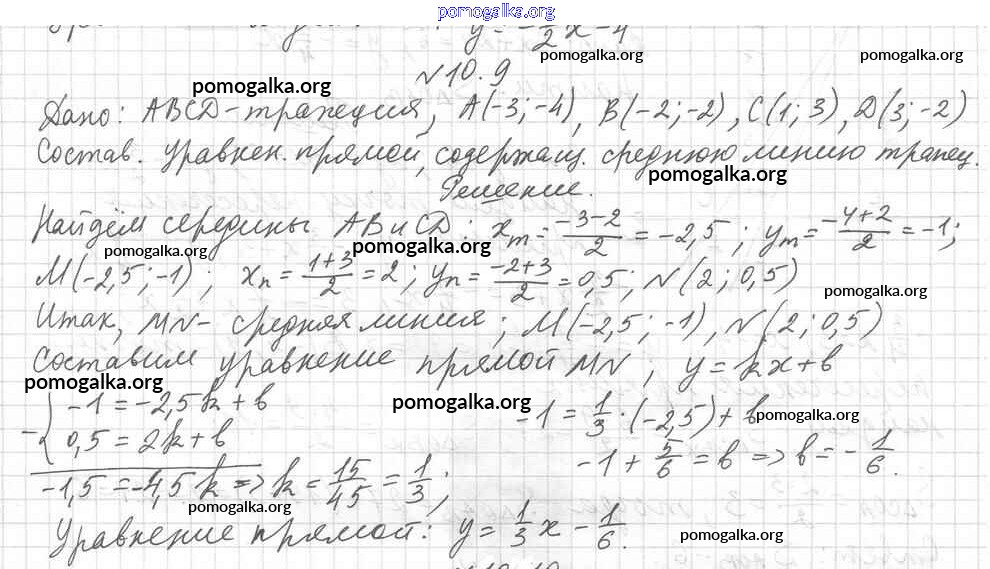 pomogalka.org
y = -1/2 x - 4
pomogalka.org
pomogalka.org
№10.9
pomogalka.org
Дано: ABCD - трапеция, A(-3; -4), B(-2; -2), C(1; 3), D(3; -2)
Состав. уравнен. прямой, содержащ. среднюю линию трапец.
pomogalka.org
Решение.
Найдём середины AB и CD: xm = (-3-2)/2 = -2,5; ym = (-4+2)/2 = -1;
pomogalka.org
pomogalka.org
M(-2,5; -1); xn = (1+3)/2 = 2; yn = (-2+3)/2 = 0,5; N(2; 0,5)
pomogalka.org
Итак, MN - средняя линия; M(-2,5; -1), N(2; 0,5)
Составим уравнение прямой MN, y = kx + b
pomogalka.org
pomogalka.org
-1 = -2,5k + b
-1 = 1/3 · (-2,5) + b
pomogalka.org
- { 0,5 = 2k + b
-1 + 5/6 = b => b = -1/6.
-1,5 = -4,5k => k = 15/45 = 1/3;
pomogalka.org
Уравнение прямой: y = 1/3 x - 1/6.
pomogalka.org